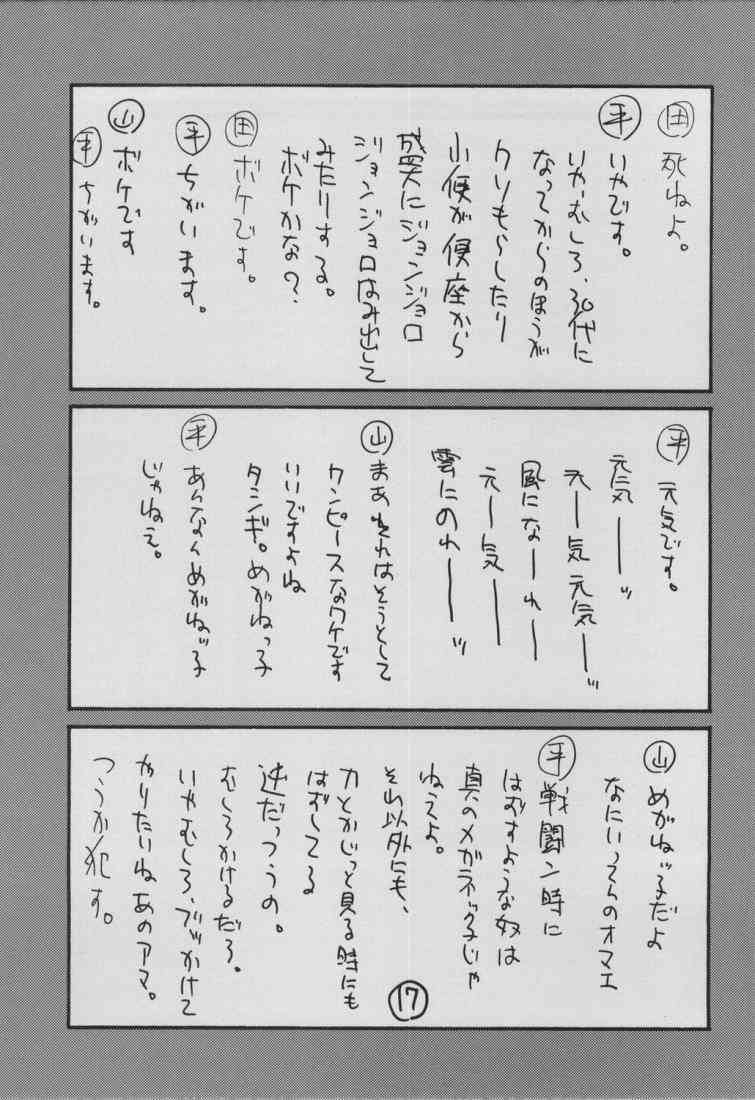 田 死ねよ。
平 いやです。
いや、むしろ、30代に
なってからのほうが
クソもらしたり
小便が便座から
盛大にジョンジョロ
ジョンジョロはみ出して
みたりする。
ボケかな？
田 ボケです。
平 ちがいます。
山 ボケです
平 ちがいます。
平 元気です。
元気ーッ
元ー気元気ーッ
風になーれー
元ー気ー
雲にのれーッ
山 まあそれはそうとして
ワンピースなワケです
いいですよね
タシギ。めがねっ子
平 あんなんめがねッ子
じゃねえ。
山 めがねッ子だよ
なにいってんのオマエ
平 戦闘ン時に
はずすような奴は
真のメガネッ子じゃ
ねえよ。
それ以外にも、
刀とかじっと見る時にも
はずしてる
逆だっつうの。
むしろかけるだろ。
いやむしろ、ブッかけて
やりたいねあのアマ。
つうか犯す。
17